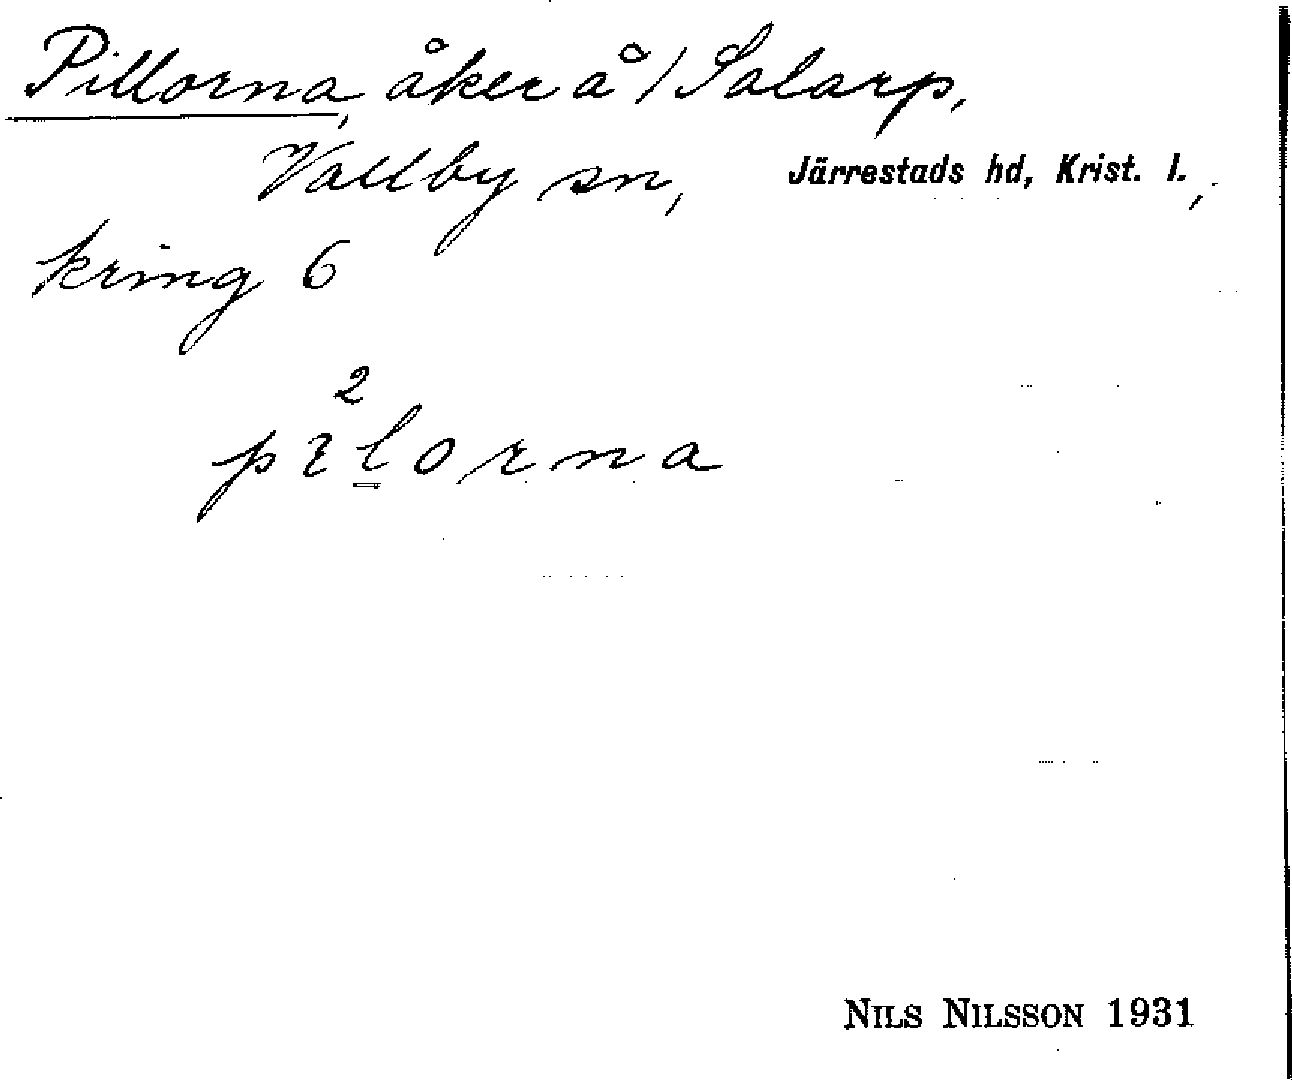 Pillorna, åker å 1 Salarp,
Vallby sn, Järrestads hd, Krist. l.,
kring 6
2
pılorna
NILS NILSSON 1931